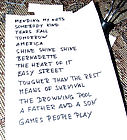 MENDING MY NETS
SOMEBODY KIND
TEARS FALL
TOMORROW
AMERICA
SHINE SHINE SHINE
BERNADETTE
THE HEART OF IT
EASY STREET
TOUGHER THAN THE REST
MEANS OF SURVIVAL
THE DROWNING POOL
A FATHER AND A SON
GAMES PEOPLE PLAY